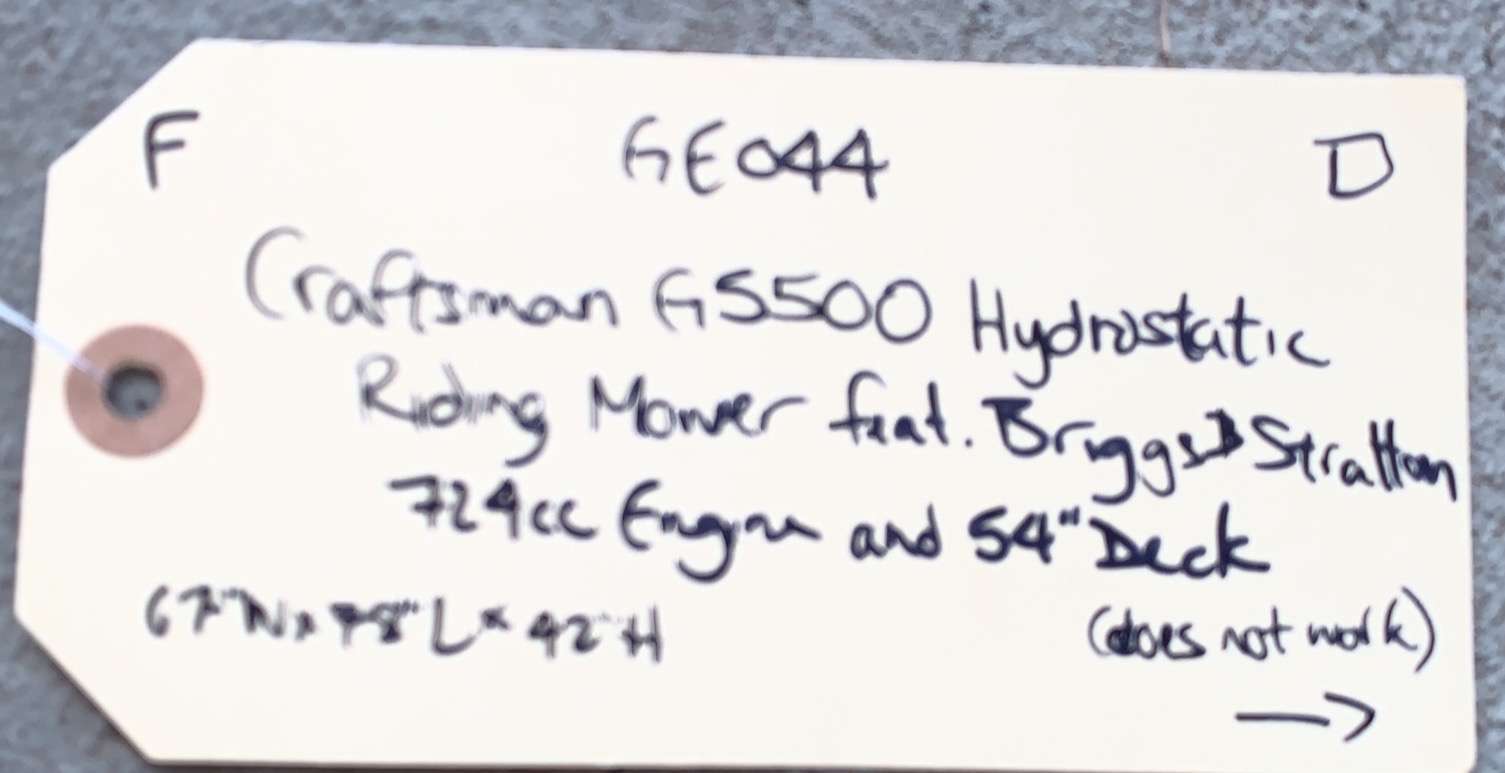 F GE044 D
Craftsman GS500 Hydrostatic
Riding Mower feat. Briggs & Stratton
724cc Engine and 54" Deck
67"W x 78" L x 42" H (does not work)
→